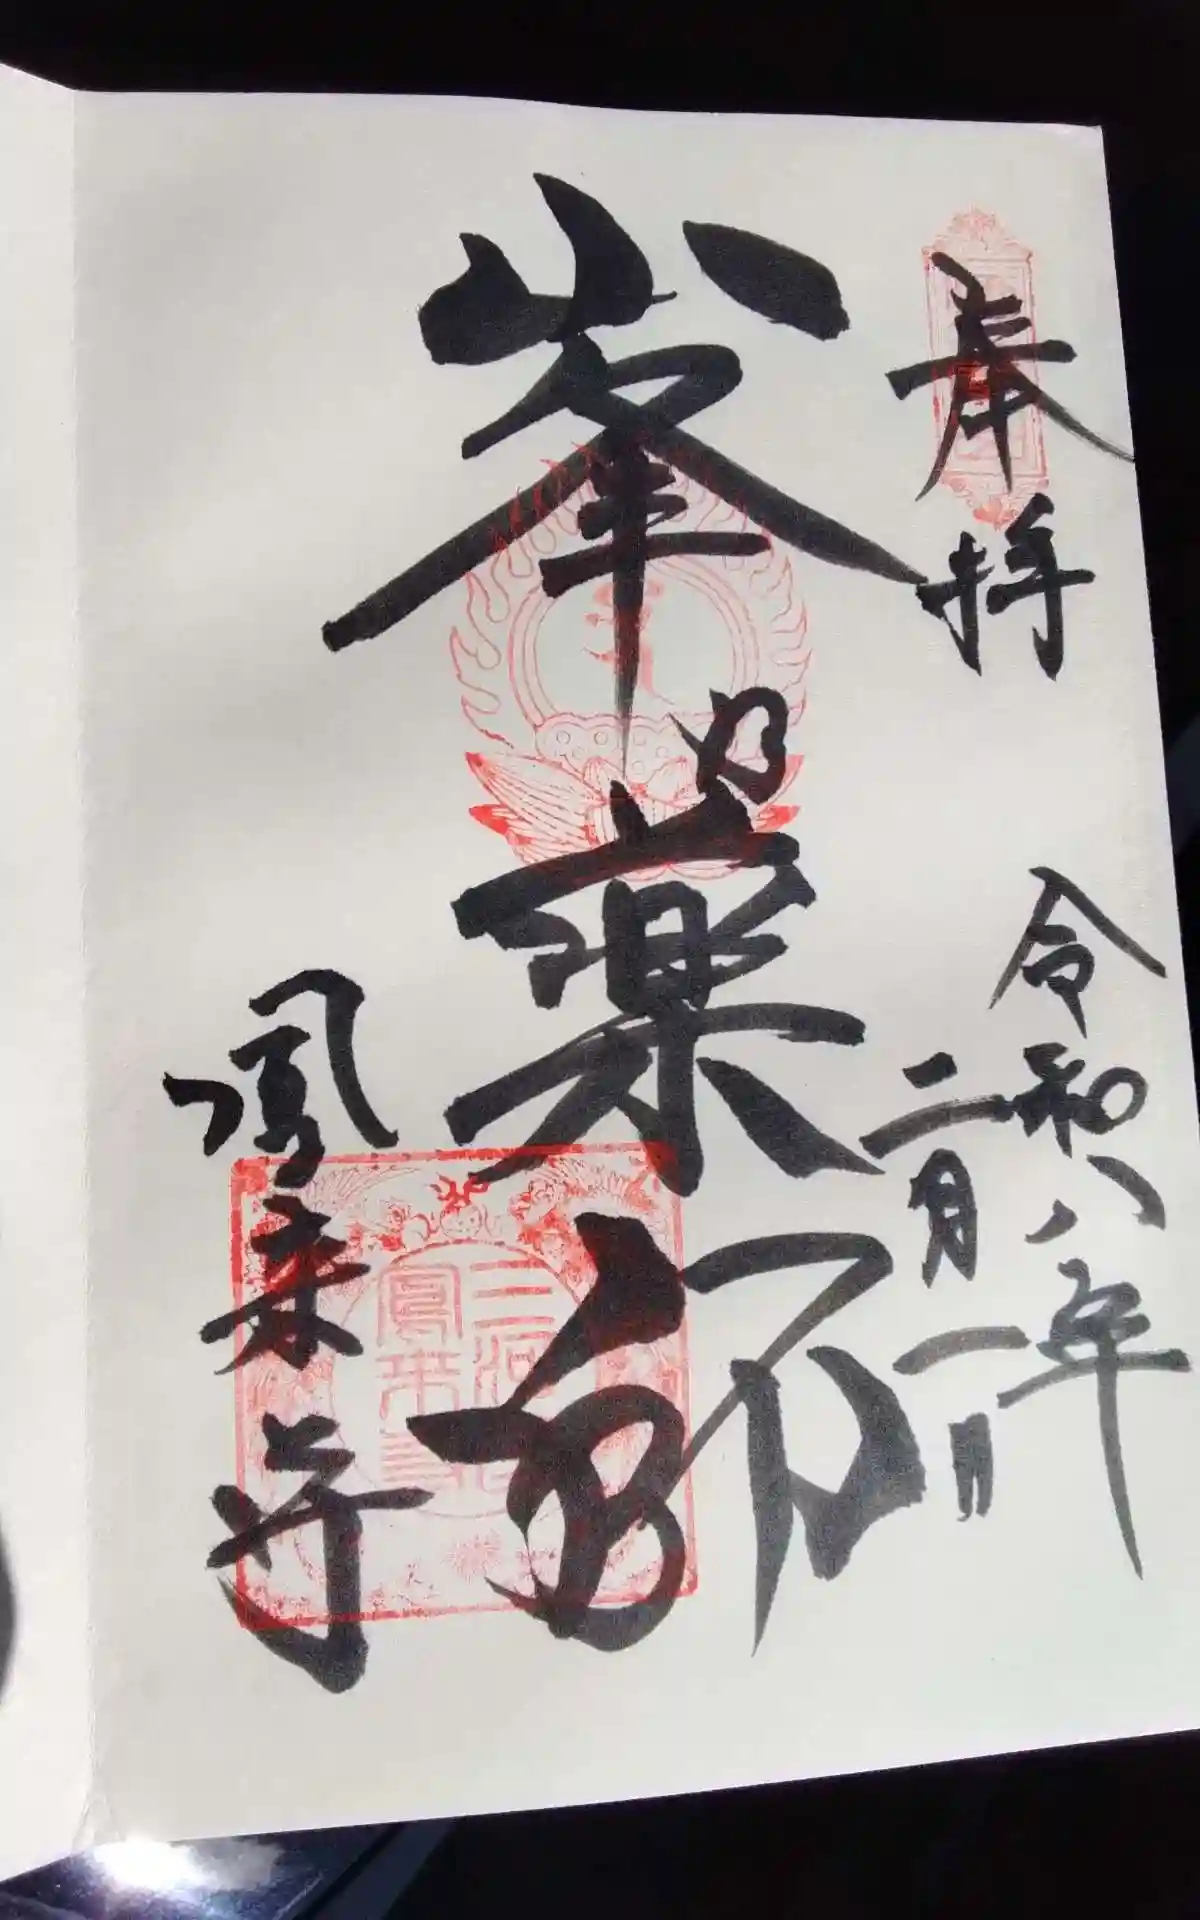 奉拝
令和八年
二月一日
峯の薬師
鳳来寺
三河
鳳来寺